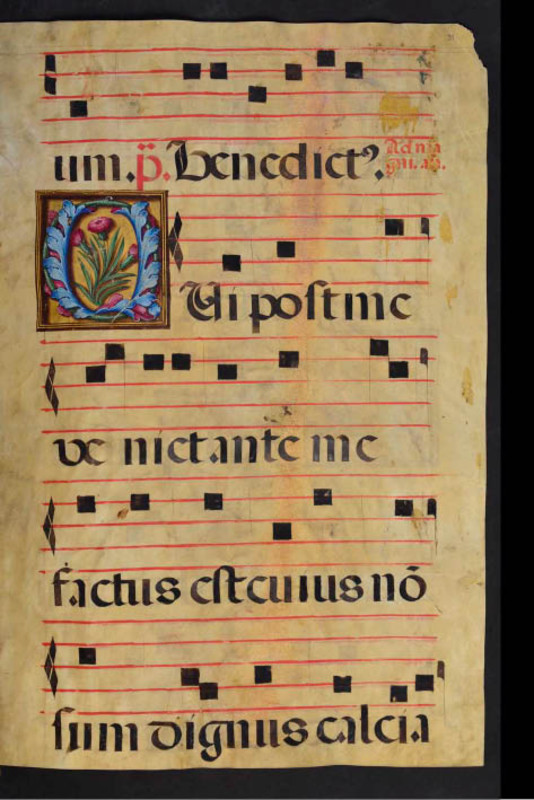 um. p̈. Benedictꝰ.
Ad
Qui post me
ve niet ante me
factus est cuius nō
sum dignus calcia